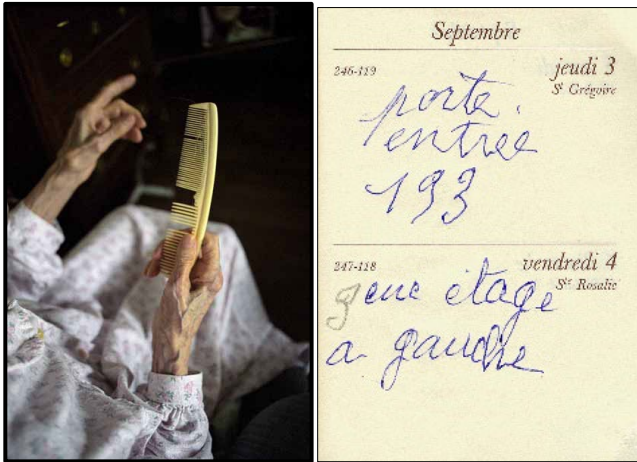 Septembre
246-119 jeudi 3
St Grégoire
porte.
entree
193
247-118 vendredi 4
Ste Rosalie
geue étage
a gauche